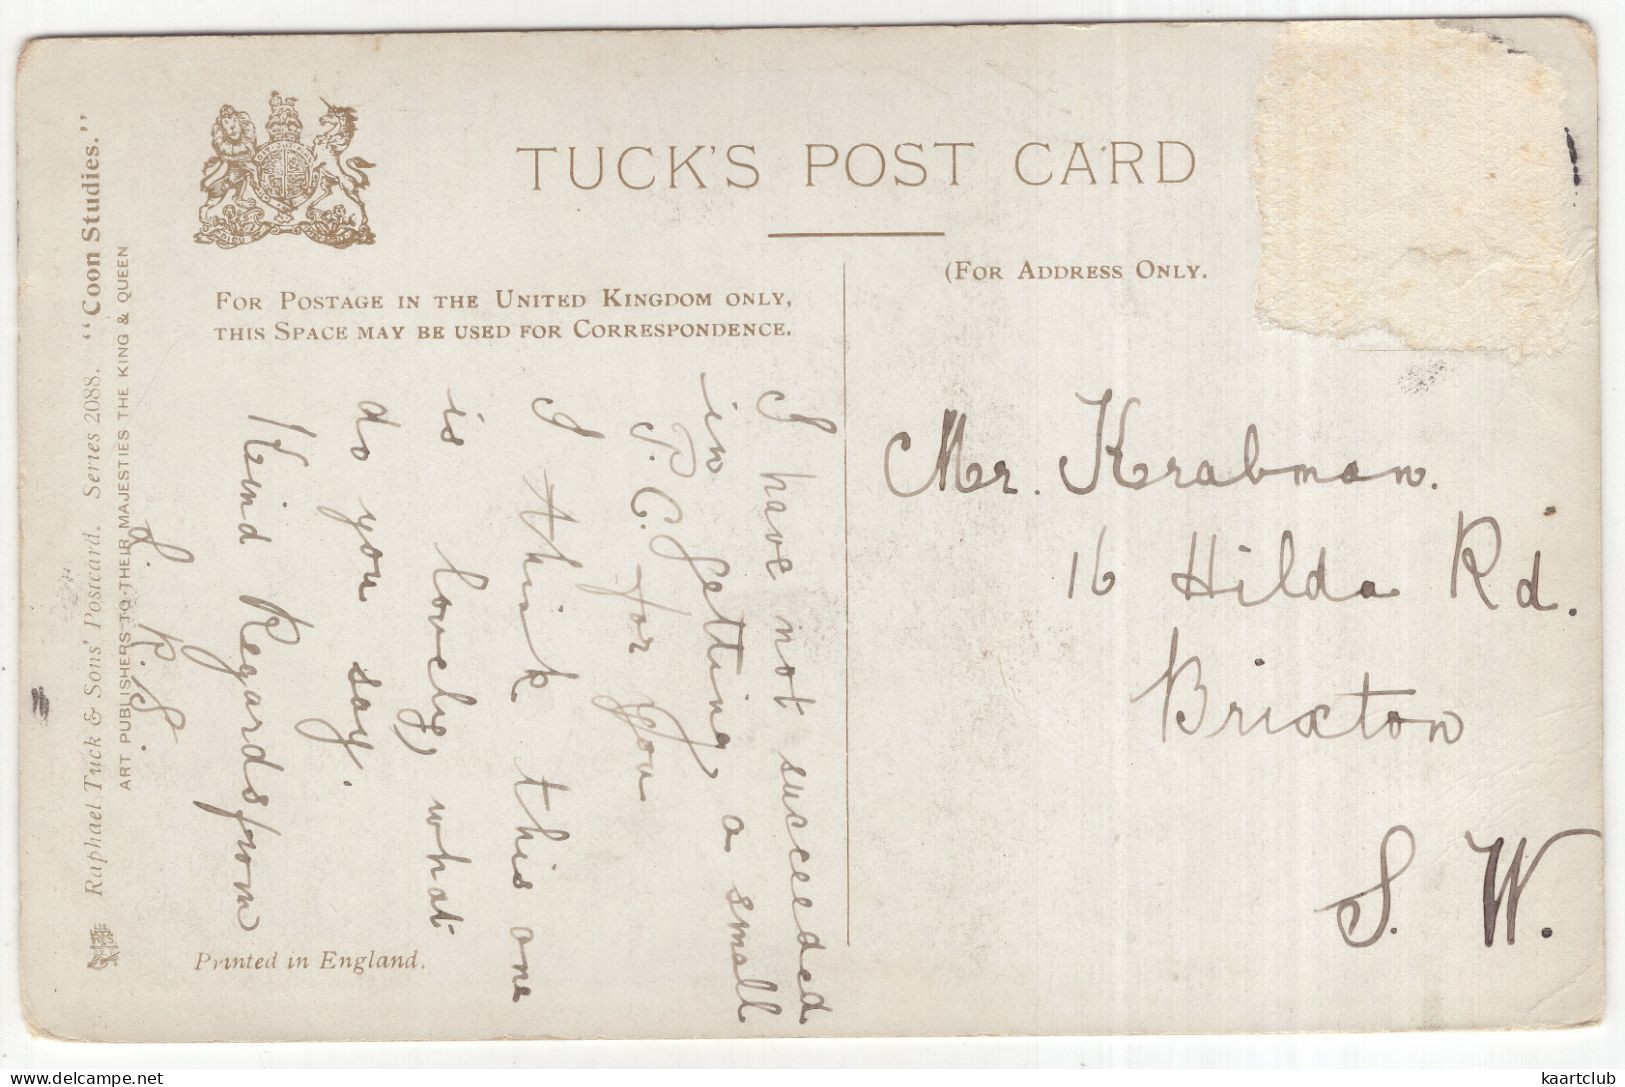 TUCK'S POST CARD
(FOR ADDRESS ONLY.
FOR POSTAGE IN THE UNITED KINGDOM ONLY,
THIS SPACE MAY BE USED FOR CORRESPONDENCE.
I have not succeeded
in getting a small
P.C. for you
I think this one
is lovely, what
do you say.
Kind Regards from
L. R. S.
Mr. Krabman.
16 Hilda Rd.
Brixton
S. W.
Raphael Tuck & Sons' Postcard. Series 2088. "Coon Studies."
ART PUBLISHERS TO THEIR MAJESTIES THE KING & QUEEN
Printed in England.
delcampe.net
kaartclub